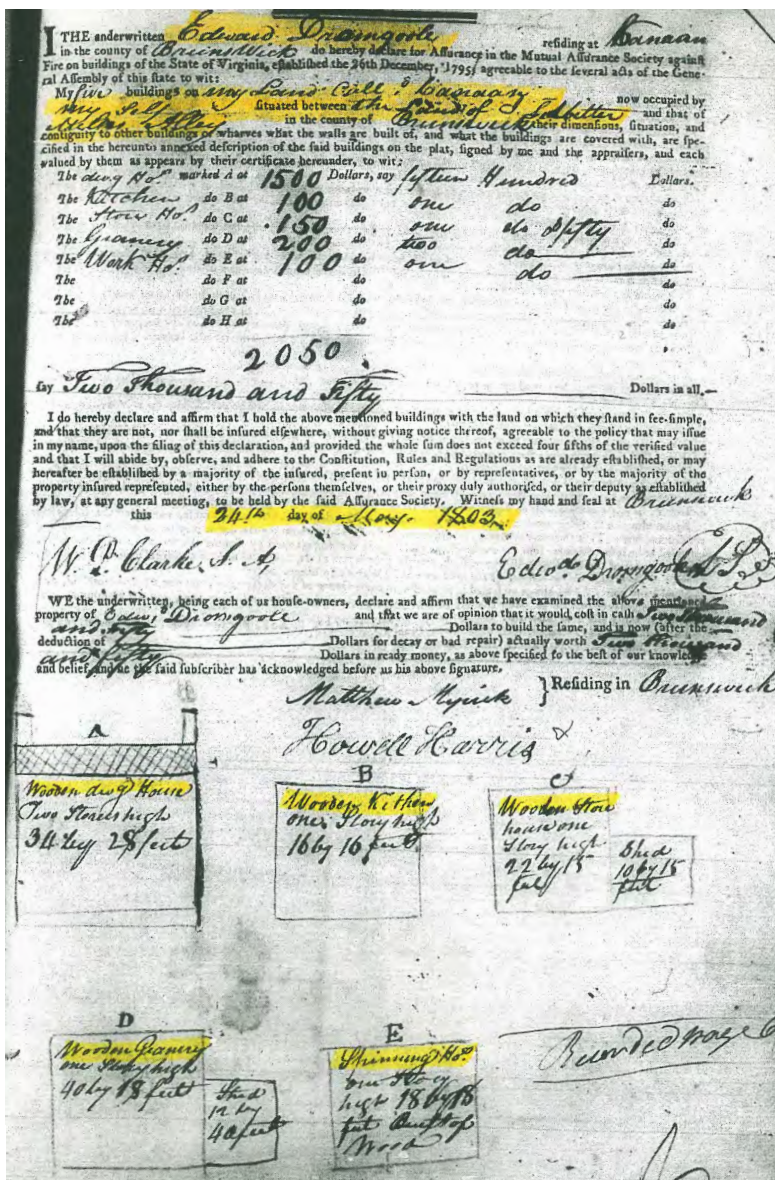 I THE underwritten Edward Dromgoole residing at Canaan
in the county of Brunswick do hereby declare for Assurance in the Mutual Assurance Society against
Fire on buildings of the State of Virginia, established the 26th December, 1795, agreeable to the several acts of the Gene-
ral Assembly of this state to wit:
My five buildings on my Land Call'd Canaan now occupied by
my self situated between the Land of Ledbetter and that of
in the county of Brunswick their dimensions, situation, and
contiguity to other buildings or wharves what the walls are built of, and what the buildings are covered with, are spe-
cified in the hereunto annexed description of the said buildings on the plat, signed by me and the appraisers, and each
valued by them as appears by their certificate hereunder, to wit:
The dwg Ho. marked A at 1500 Dollars, say fifteen Hundred Dollars.
The Kitchen do B at 100 do one do do
The Store Ho. do C at 150 do one do & fifty do
The Granery do D at 200 do two do do
The Work Ho. do E at 100 do one do do
The do F at do do
The do G at do do
The do H at do do
2050
say Two Thousand and Fifty Dollars in all.—
I do hereby declare and affirm that I hold the above mentioned buildings with the land on which they stand in fee-simple,
and that they are not, nor shall be insured elsewhere, without giving notice thereof, agreeable to the policy that may issue
in my name, upon the filing of this declaration, and provided the whole sum does not exceed four fifths of the verified value
and that I will abide by, observe, and adhere to the Constitution, Rules and Regulations as are already established, or may
hereafter be established by a majority of the insured, present in person, or by representatives, or by the majority of the
property insured represented, either by the persons themselves, or their proxy duly authorised, or their deputy as established
by law, at any general meeting, to be held by the said Assurance Society. Witness my hand and seal at Brunswick
this 24th day of May 1803
W. Clarke, S. A, Edwd. Dromgoole LS
WE the underwritten, being each of us house-owners, declare and affirm that we have examined the above mentioned
property of Edwd. Dromgoole and that we are of opinion that it would cost in cash Two thousand
and fifty Dollars to build the same, and is now (after the
deduction of Dollars for decay or bad repair) actually worth Two thousand
and fifty Dollars in ready money, as above specified to the best of our knowledge
and belief, and he the said subscriber has acknowledged before us his above signature.
Matthew Myrick } Residing in Brunswick
Howell Harris
A
Wooden dwg House
Two Stories high
34 by 28 feet
B
Wooden Kitchen
one Story high
16 by 16 feet
C
Wooden Store
house one
Story high
22 by 15
feet
Shed
10 by 15
feet
D
Wooden Granery
one Story high
40 by 18 feet
Shed
12 by
40 feet
E
Spinning Ho.
one Story
high 18 by 18
feet Built of
Wood
Recorded